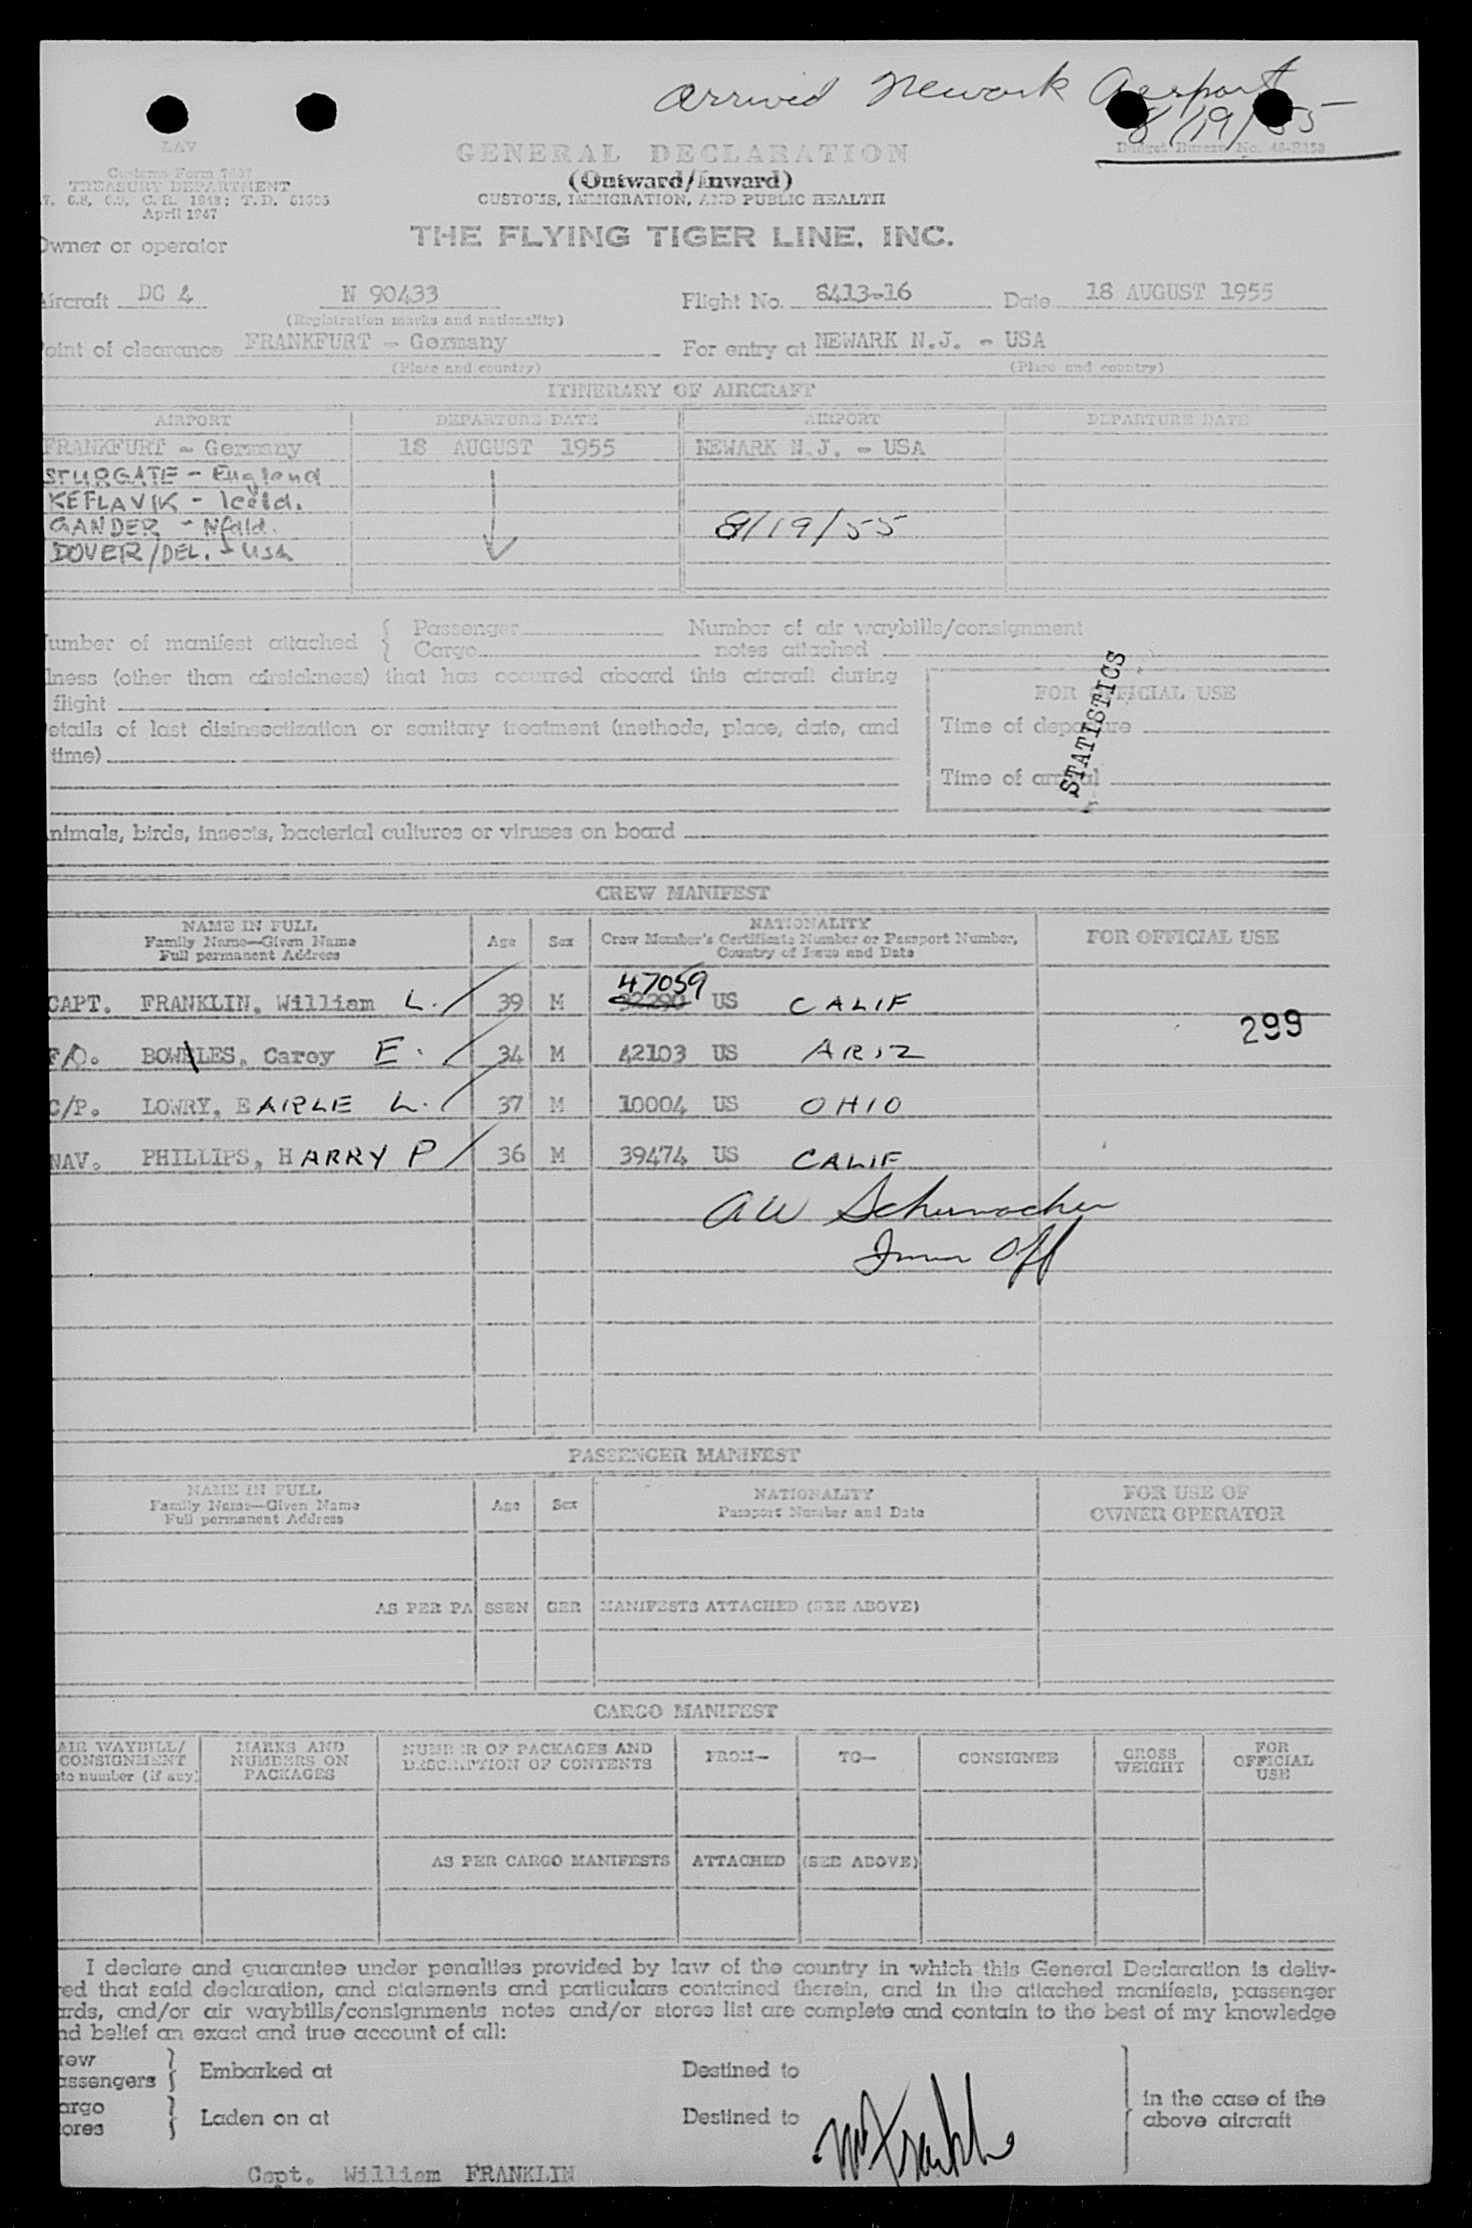 arrived Newark Airport
8/19/55
LAV
GENERAL DECLARATION
Budget Bureau No. 48-R153
Customs Form 7507
TREASURY DEPARTMENT
(Outward/Inward)
April 1947
CUSTOMS, IMMIGRATION, AND PUBLIC HEALTH
Owner or operator
THE FLYING TIGER LINE, INC.
Aircraft DC 4 N 90433 Flight No. 8413-16 Date 18 AUGUST 1955
(Registration marks and nationality)
oint of clearance FRANKFURT - Germany For entry at NEWARK N.J. - USA
(Place and country) (Place and country)
ITINERARY OF AIRCRAFT
AIRPORT DEPARTURE DATE AIRPORT DEPARTURE DATE
FRANKFURT - Germany 18 AUGUST 1955 NEWARK N.J. - USA
STURGATE - England
KEFLAVIK - Iceld.
GANDER - Nfdld. 8/19/55
DOVER/DEL. - USA
umber of manifest attached { Passenger Number of air waybills/consignment
Cargo notes attached
lness (other than airsickness) that has occurred aboard this aircraft during
flight
FOR OFFICIAL USE
etails of last disinsectization or sanitary treatment (methods, place, date, and
time)
Time of departure
Time of arrival
STATISTICS
nimals, birds, insects, bacterial cultures or viruses on board
CREW MANIFEST
NAME IN FULL
Family Name—Given Name
Full permanent Address
Age Sex
NATIONALITY
Crew Member's Certificate Number or Passport Number,
Country of Issue and Date
FOR OFFICIAL USE
47059
CAPT. FRANKLIN, William L. 39 M 32290 US CALIF
299
F/O. BOWLES, Carey E. 34 M 42103 US ARIZ
C/P. LOWRY, EARLE L. 37 M 10004 US OHIO
NAV. PHILLIPS, HARRY P 36 M 39474 US CALIF
AW Schumacher
Imm Off
PASSENGER MANIFEST
NAME IN FULL
Family Name—Given Name
Full permanent Address
Age Sex
NATIONALITY
Passport Number and Date
FOR USE OF
OWNER OPERATOR
AS PER PASSENGER MANIFESTS ATTACHED (SEE ABOVE)
CARGO MANIFEST
AIR WAYBILL/
CONSIGNMENT
ote number (if any)
MARKS AND
NUMBERS ON
PACKAGES
NUMBER OF PACKAGES AND
DESCRIPTION OF CONTENTS
FROM—
TO—
CONSIGNEE
GROSS
WEIGHT
FOR
OFFICIAL
USE
AS PER CARGO MANIFESTS ATTACHED (SEE ABOVE)
I declare and guarantee under penalties provided by law of the country in which this General Declaration is deliv-
red that said declaration, and statements and particulars contained therein, and in the attached manifests, passenger
ards, and/or air waybills/consignments notes and/or stores list are complete and contain to the best of my knowledge
nd belief an exact and true account of all:
rew
assengers } Embarked at Destined to
argo
ores } Laden on at Destined to
in the case of the
above aircraft
Wm Franklin
Capt. William FRANKLIN